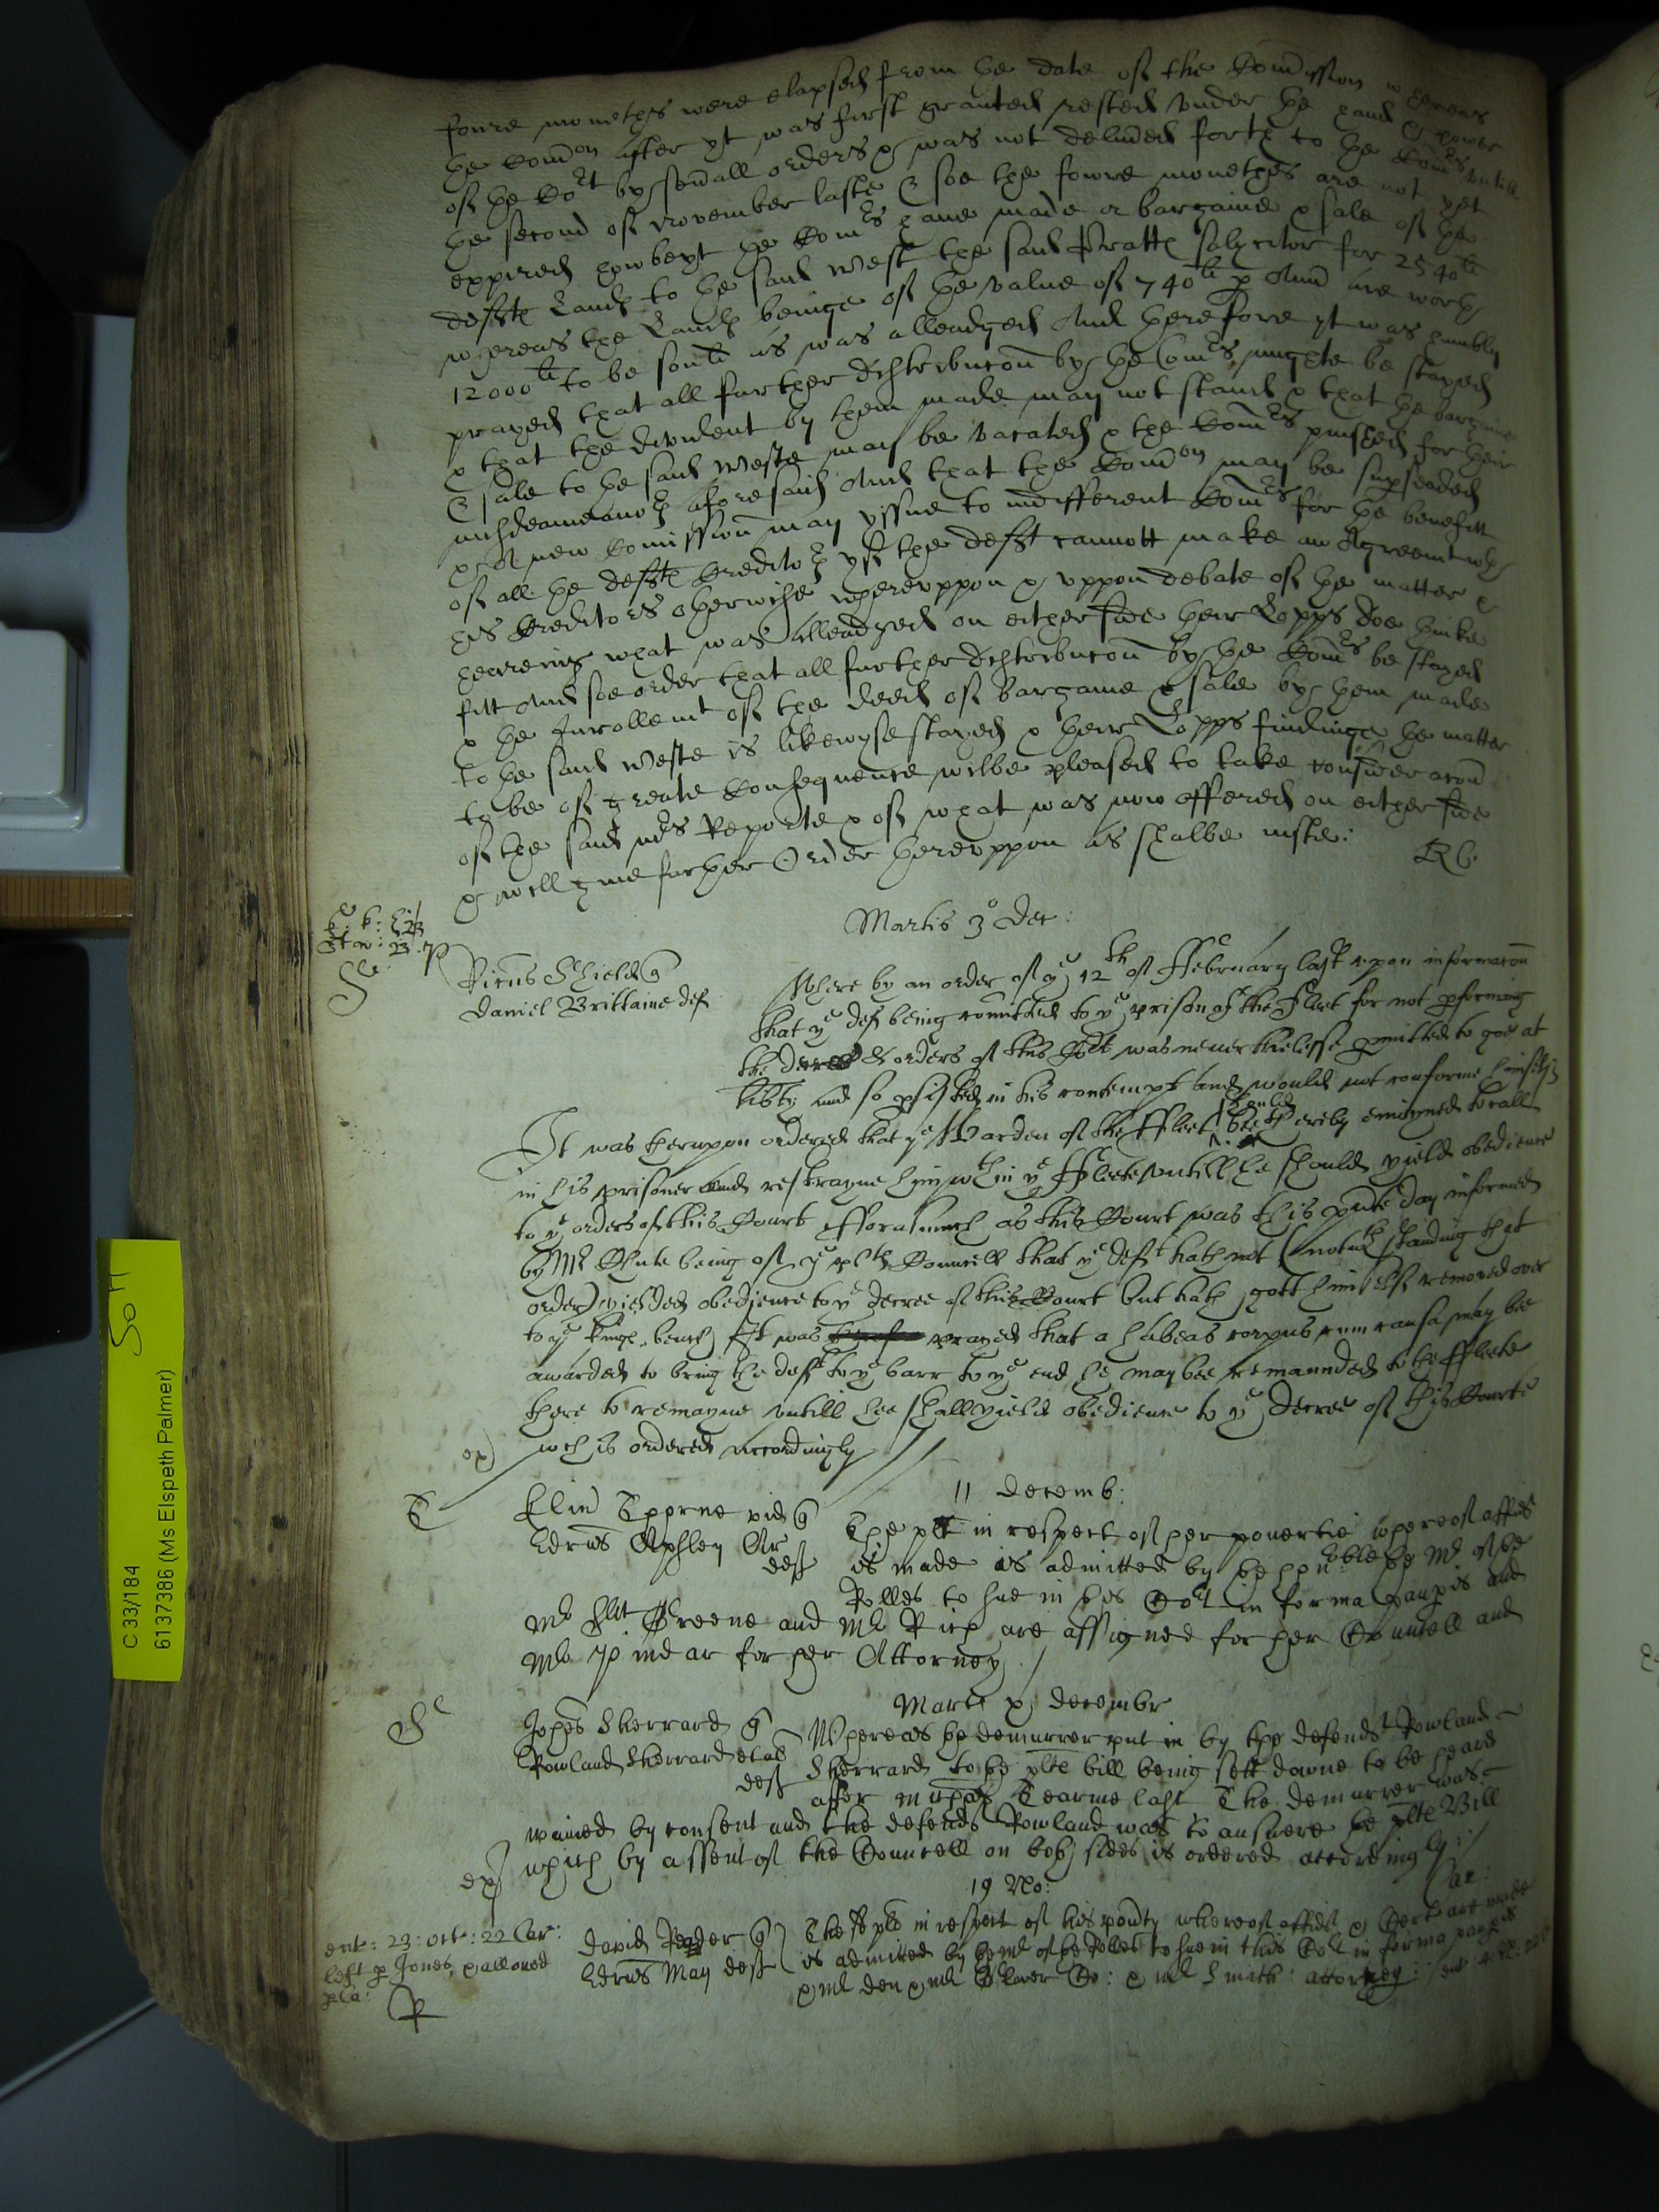 foure monethes were elapsed from the date of the Com̄ission whereas
the Com̄on after yt was first graunted rested vnder the hand & power
of the Cort by seuall orders & was not deliu̅ed forth to the Com̄rs vntill
the second of November laste & soe the foure monethes are not yet
expired howbeyt the Com̄rs haue made a bargaine & sale of the
deftes Landes to the said West the said Pratte solycitor for 2540li
whereas the Landes beinge of the value of 740li p Ann̄ are worth
12000li to be sould as was alleadged And therefore yt was humbly
prayed that all further distribuc̄on by the Com̄rs mighte be stayed
& that the divident by them made may not stand & that the bargaine
& sale to the said Weste may be vacated & the Com̄rs punished for their
misdeameanors aforesaid And that the Com̄on may be supseaded
& A new Comission̄ may yssue to indifferent Com̄rs for the benefitt
of all the deftes Creditors yf the deft cannott make an Agreemt wth
his Creditors otherwise whereuppon & vppon debate of the matter &
heareing what was alleadged on either side their Lopps doe thinke
fitt And soe order that all further distribuc̄on by the Com̄rs be stayed
& the Inrollemt of the deed of Bargaine & sale by them made
to the said Weste is likewyse stayed & their Lopps findinge the matter
to be of greate Consequence wilbe pleased to take considerac̄on
of the said mrs Reporte & of what was now offered on either side
& will giue further Order thereuppon as shalbe iuste:
RC
Martis 3o Dec:
Ricus Sheild q
Daniel Brittaine def
Where by an order of ye 12th of ffebruary last vpon informac̄on
that ye def being com̄itted to ye prison of the fleet for not pforming
the decree & orders of this Cort was neuerthelesse pmitted to goe at
libty and so psisted in his contempt and would not conforme himself
It was thervpon ordered that ye Warden of the ffleet should bee therby enioyned to call
in his prisoner and restrayne him wthin ye ffleete vntill he should yield obedience
to ye orders of this Court fforasmuch as this Court was this pnte day informed
by Mr Chute being of ye pltes Councell that ye deft hath not (notwthstanding that
order) yielded obedience to ye decree of this Court but hath gott himself remoued over
to ye Kinges bench It was prayed that a habeas corpus cum causa may bee
awarded to bring the deft to ye barr to ye end he may bee remaunded to the ffleete
there to remayne vntill hee shall yield obedience to ye Decree of this Courte
wch is ordered accordingly
ex)
11 Decemb:
Elin̄ Thorne vid q
Edrus Aphley Ar
deft
The plt in respect of her pouertie whereof affid
is made is admitted by the honoble the Mr of the
Rolles to sue in this Cort in forma paupis and
Mr Greene and Mr Rich are assigned for her Councell and
Mr Pindar for her Attorney
Marte x Decembr
Johēs Sherrard q
Rowland Sherrard et al
deft
Whereas the demurrer put in by the defendt Rowland
Sherrard to the pltes bill being sett downe to be heard
after Michās Tearme last The demurrer was
waiued by consent and the defendt Rowland was to answere the pltes Bill
which by assent of the Councell on both sides is ordered accordingly
ex)
19 No:
ent: 23: Oct: 22 Car:
left p Jones, & allowed
David Reader q
Edrus May deft
The plt in respect of his pouty whereof affidt & Cert are made
is admitted by the mr of the Rolles to sue in this Cort in forma paupis
& mr den & mr Glover Co: & mr Smith: attorney:
C 33/184
6137386 (Ms Elspeth Palmer)